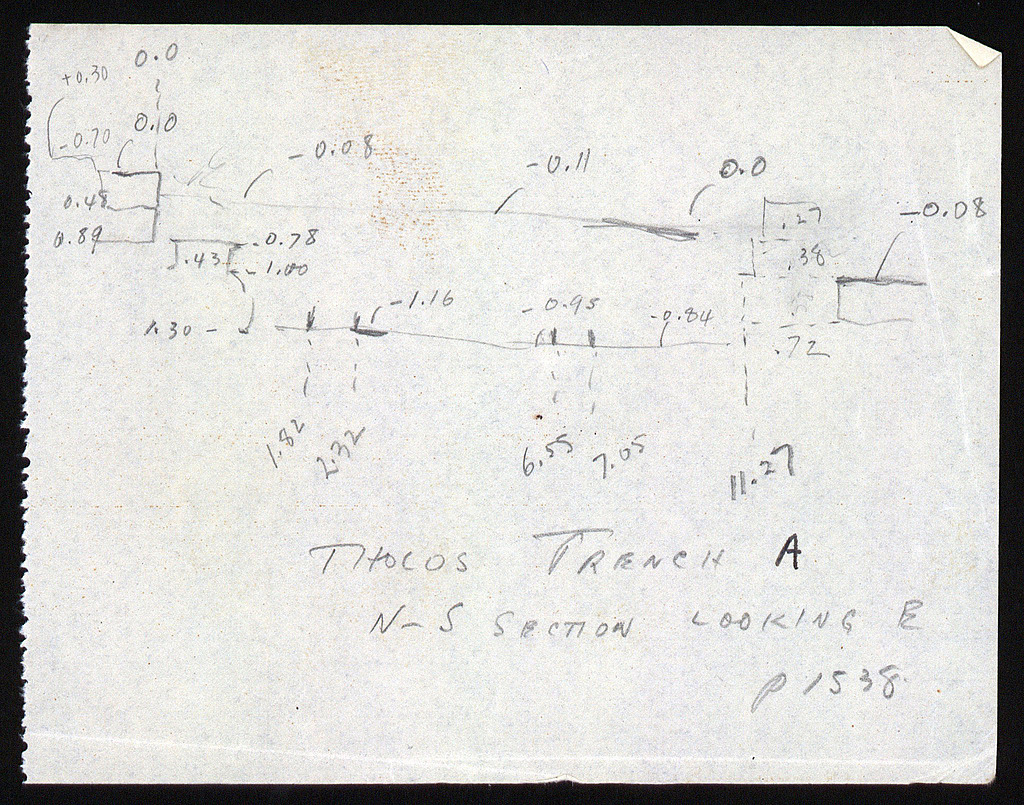 0.0
+0.30
-0.70
0.0
-0.08
-0.11
0.0
0.48
.27
-0.08
0.89
-0.78
.38
.43
-1.00
-1.16
-0.95
-0.84
1.30 -
.72
1.82
2.32
6.55
7.05
11.27
THOLOS TRENCH A
N-S SECTION LOOKING E
p 1538